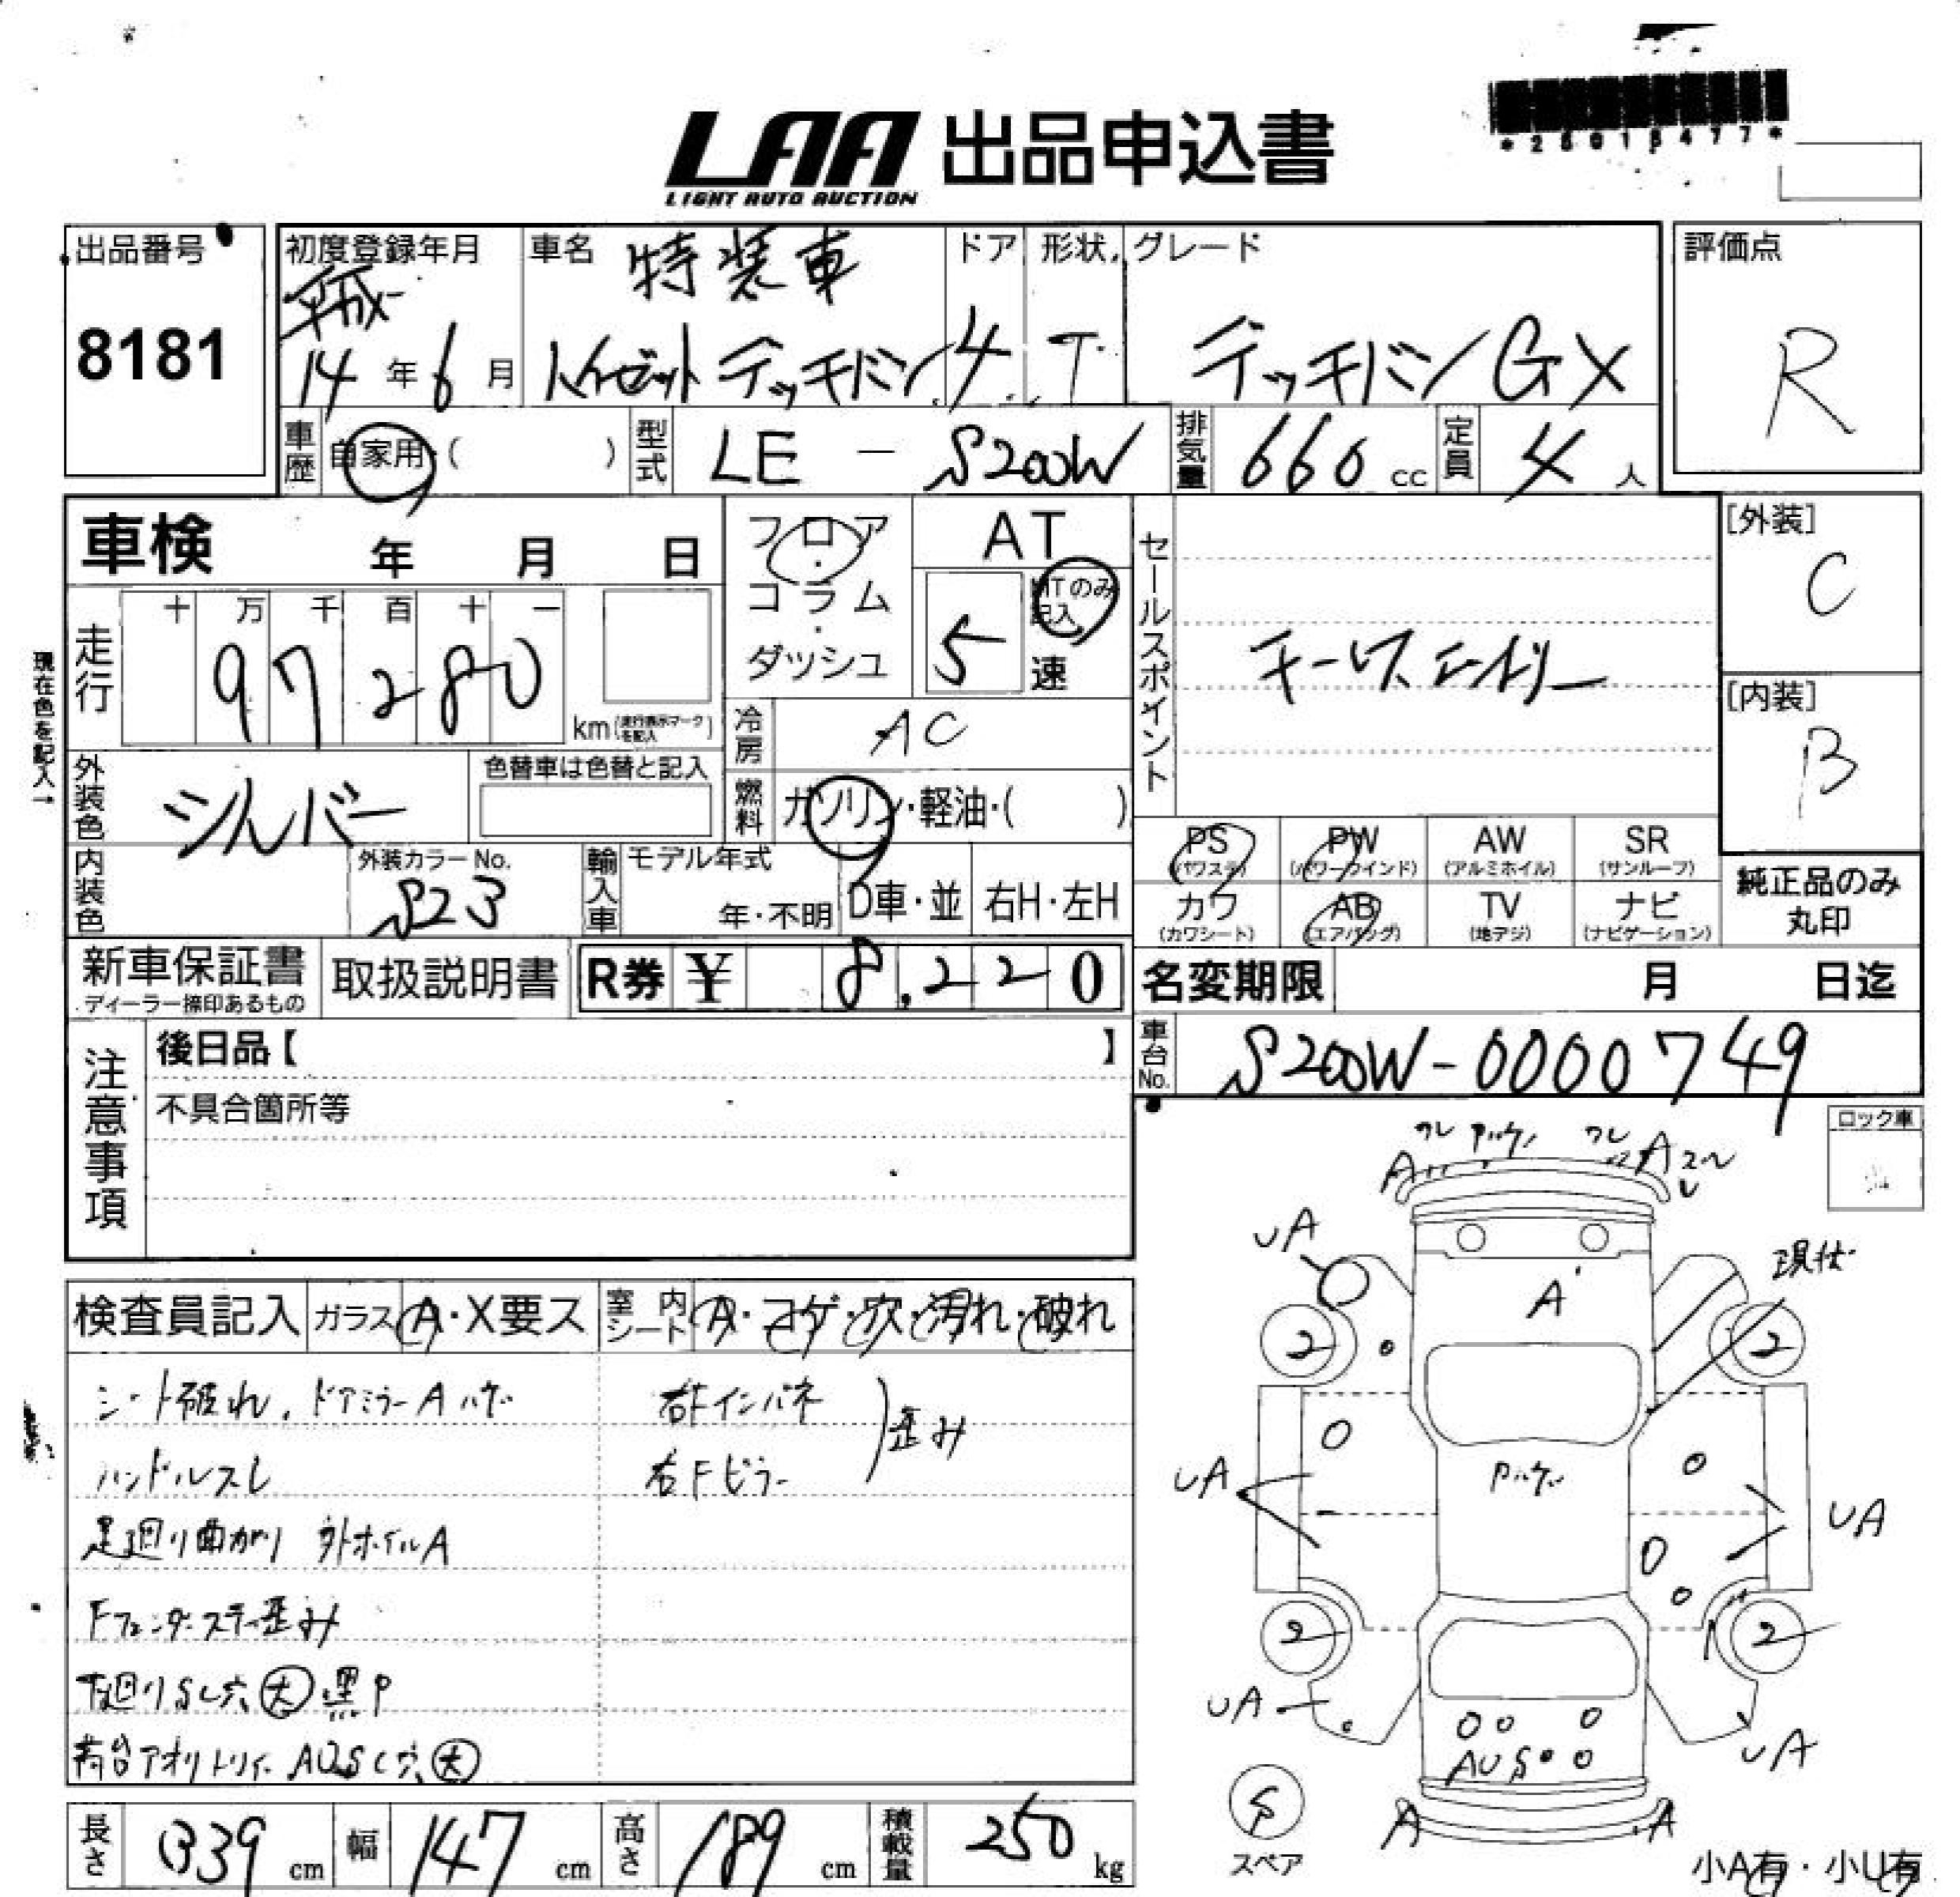 *25015477*
LAA 出品申込書
LIGHT AUTO AUCTION
出品番号
8181
初度登録年月
平成
14 年 6 月
車名 特装車
ハイゼット デッキバン
ドア
4
形状
T
グレード
デッキバン GX
評価点
R
車歴 自家用・( )
型式 LE - S200W
排気量 660 cc
定員 4 人
車検 年 月 日
フロア・コラム・ダッシュ
AT
MTのみ記入
5 速
セールスポイント
キーレスエントリー
[外装]
C
[内装]
B
現在色を記入→
走行
十 万 千 百 十 一
97280
km(走行表示マークを記入)
冷房 AC
燃料 ガソリン・軽油・( )
外装色 シルバー
色替車は色替と記入
内装色
外装カラーNo.
S23
輸入車 モデル年式
年・不明 D車・並 右H・左H
PS (パワステ) PW (パワーウインド) AW (アルミホイル) SR (サンルーフ)
カワ (カワシート) AB (エアバッグ) TV (地デジ) ナビ (ナビゲーション)
純正品のみ
丸印
新車保証書
ディーラー捺印あるもの
取扱説明書
R券 ¥ 8,220
名変期限 月 日迄
車台No. S200W-0000749
注意事項
後日品【 】
不具合箇所等
ロック車
検査員記入 ガラス A・X要ス 室内シート A・コゲ・穴・汚れ・破れ
シート破れ、ドアミラーAハゲ
ハンドルスレ
足廻り曲がり 外ホイルA
Fフェンダーステー歪み
下廻りSC穴 大 黒P
荷台アオリトリイ AUSC穴 大
右Fインパネ
右Fピラー
歪み
ワレ Pハゲ ワレ
A A
UA
現状
A
2 2
UA
Pハゲ
UA
2 2
UA
AUS
UA
A A
S
スペア
小A有・小U有
長さ 339 cm
幅 147 cm
高さ 189 cm
積載量 250 kg